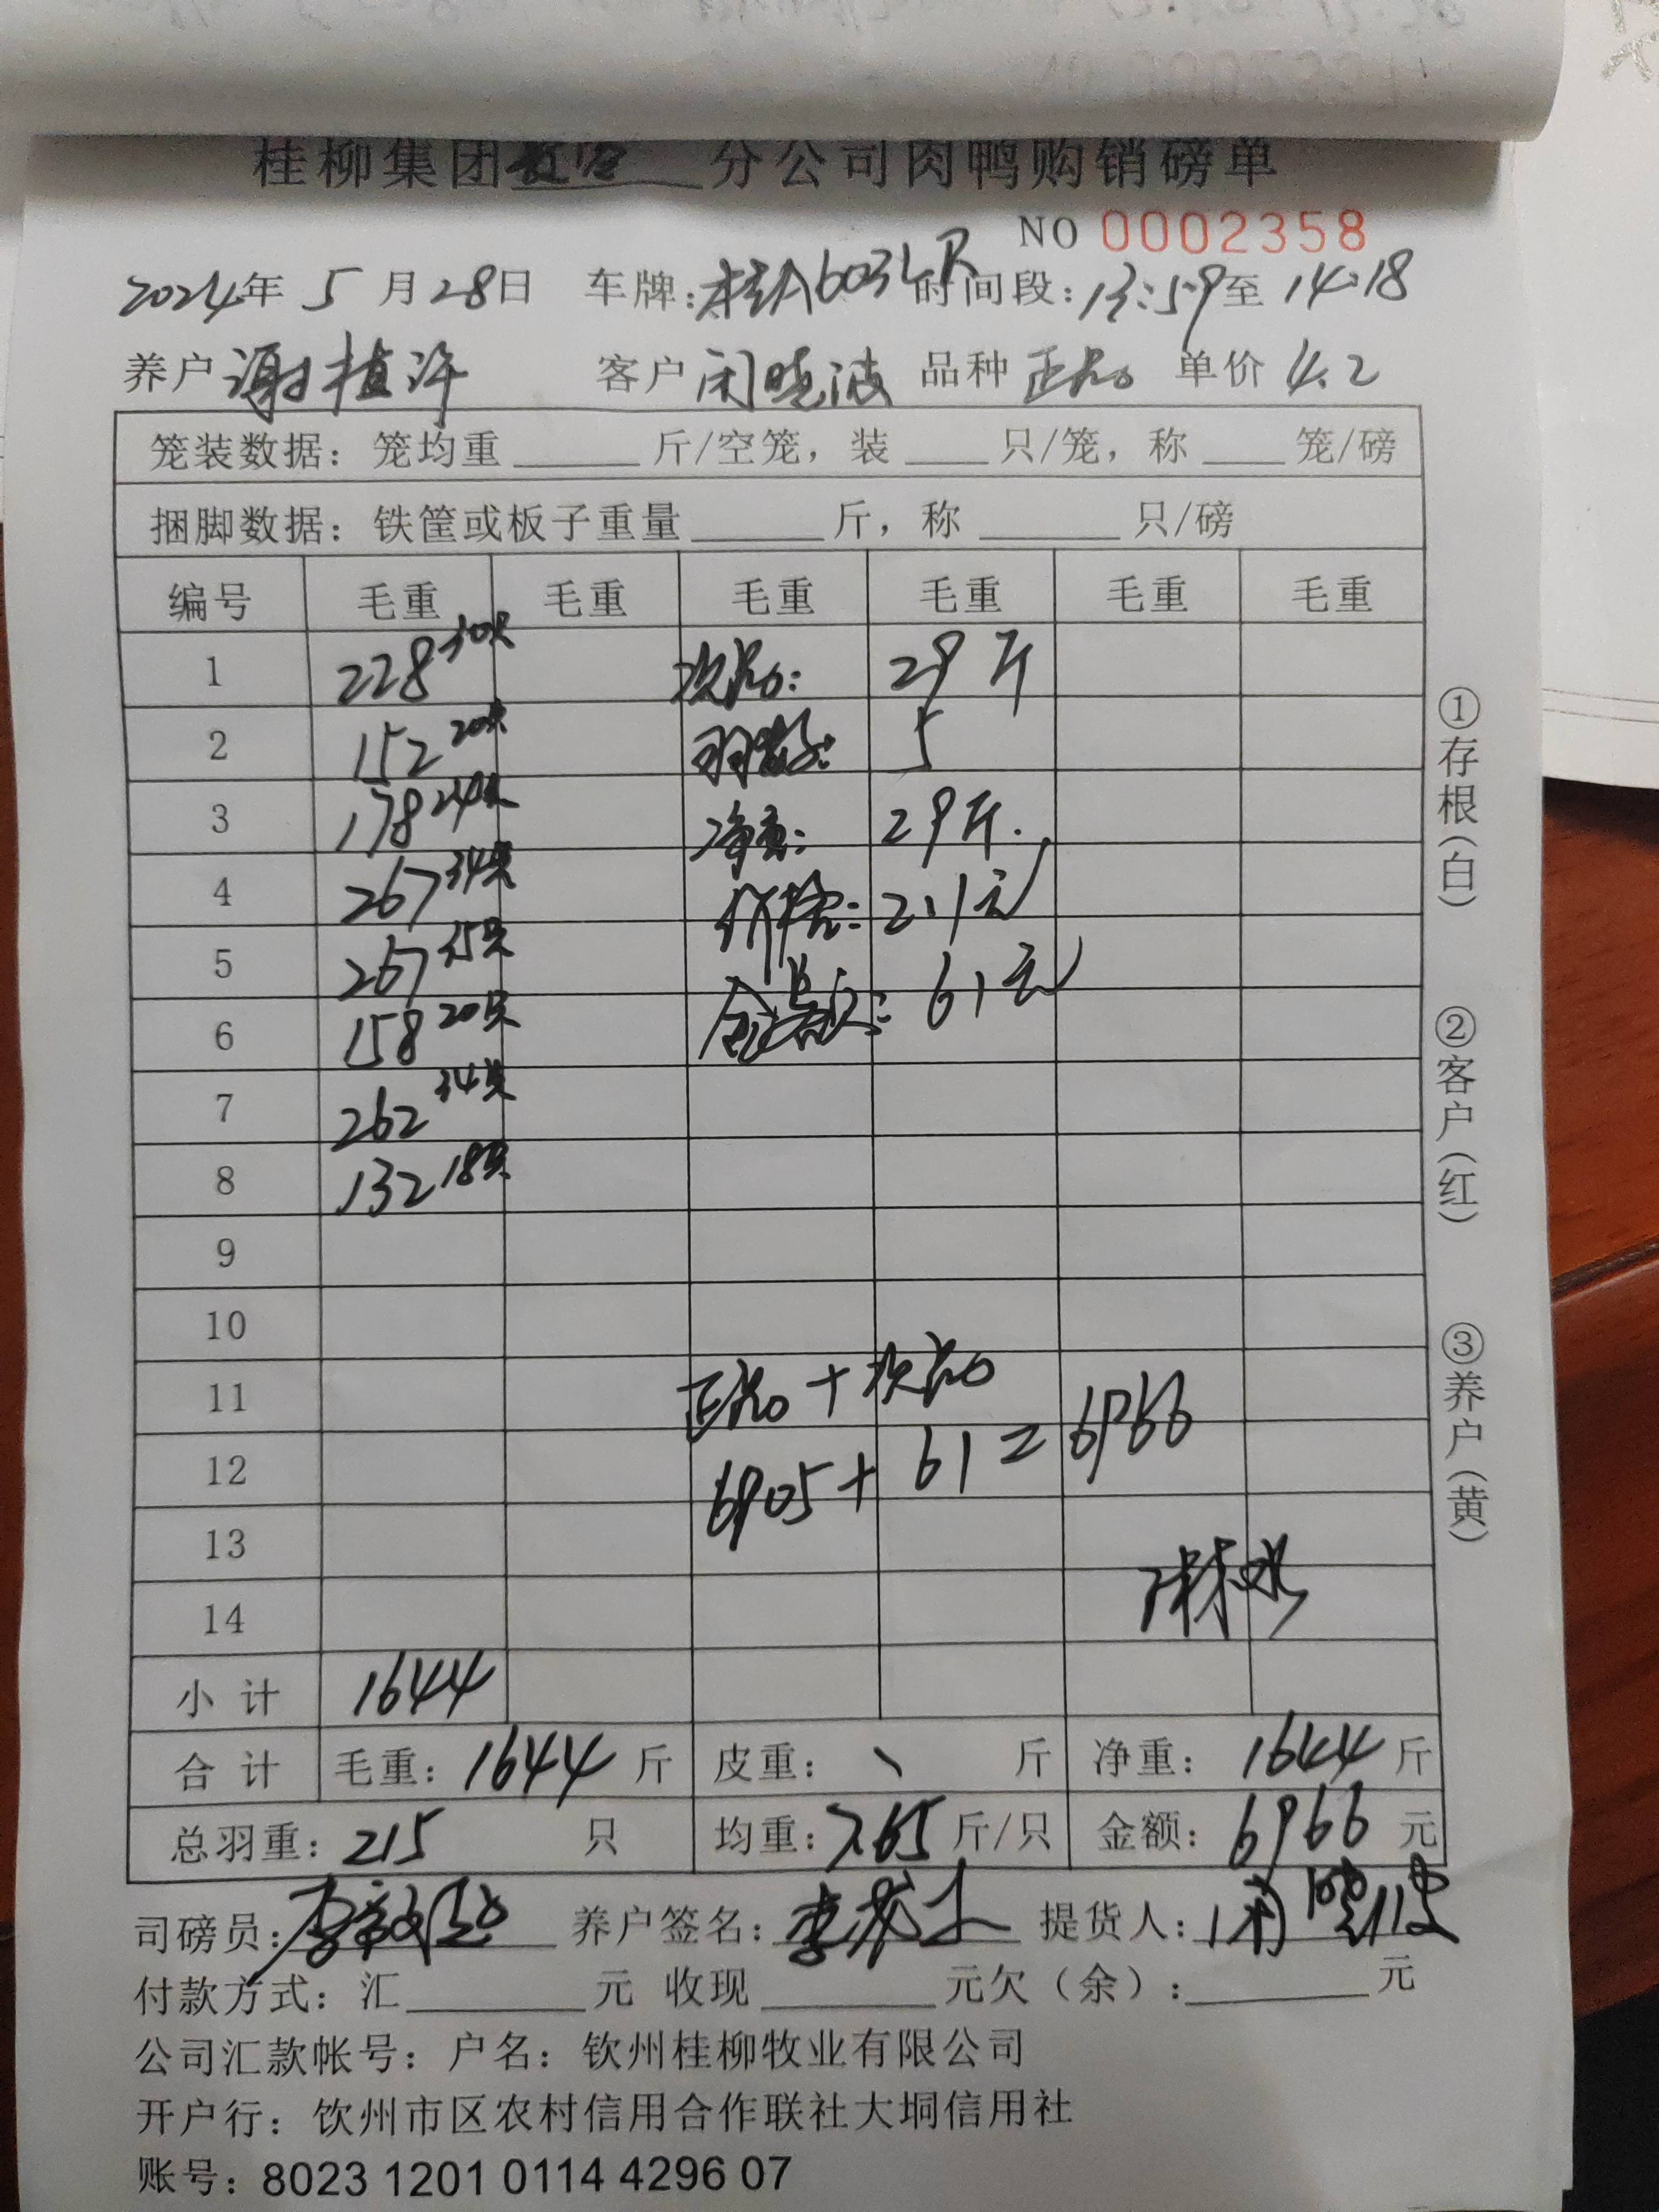 桂柳集团 分公司肉鸭购销磅单
NO 0002358
2024年 5 月 28日 车牌:桂A603LR 时间段:13:59至 14:18
养户 谢植许 客户 闭晓波 品种 正品 单价 4.2
笼装数据: 笼均重 斤/空笼, 装 只/笼, 称 笼/磅
捆脚数据: 铁筐或板子重量 斤, 称 只/磅
编号 毛重 毛重 毛重 毛重 毛重 毛重
1 228 30只 次品: 29 斤
2 152 20只 羽数: 5
3 178 24只 净重: 29斤.
4 267 34只 价格: 2.1元
5 267 35只 金额: 61元
6 158 20只
7 262 34只
8 132 18只
9
10
11 正品 + 次品
12 6905 + 61 = 6966
13
14
小 计 1644
合 计 毛重: 1644 斤 皮重: 斤 净重: 1644 斤
总羽重: 215 只 均重: 7.65 斤/只 金额: 6966 元
司磅员: 养户签名: 提货人: 闭晓波
付款方式: 汇 元 收现 元欠(余): 元
公司汇款帐号: 户名: 钦州桂柳牧业有限公司
开户行: 饮州市区农村信用合作联社大垌信用社
账号: 8023 1201 0114 4296 07
①存根(白)
②客户(红)
③养户(黄)